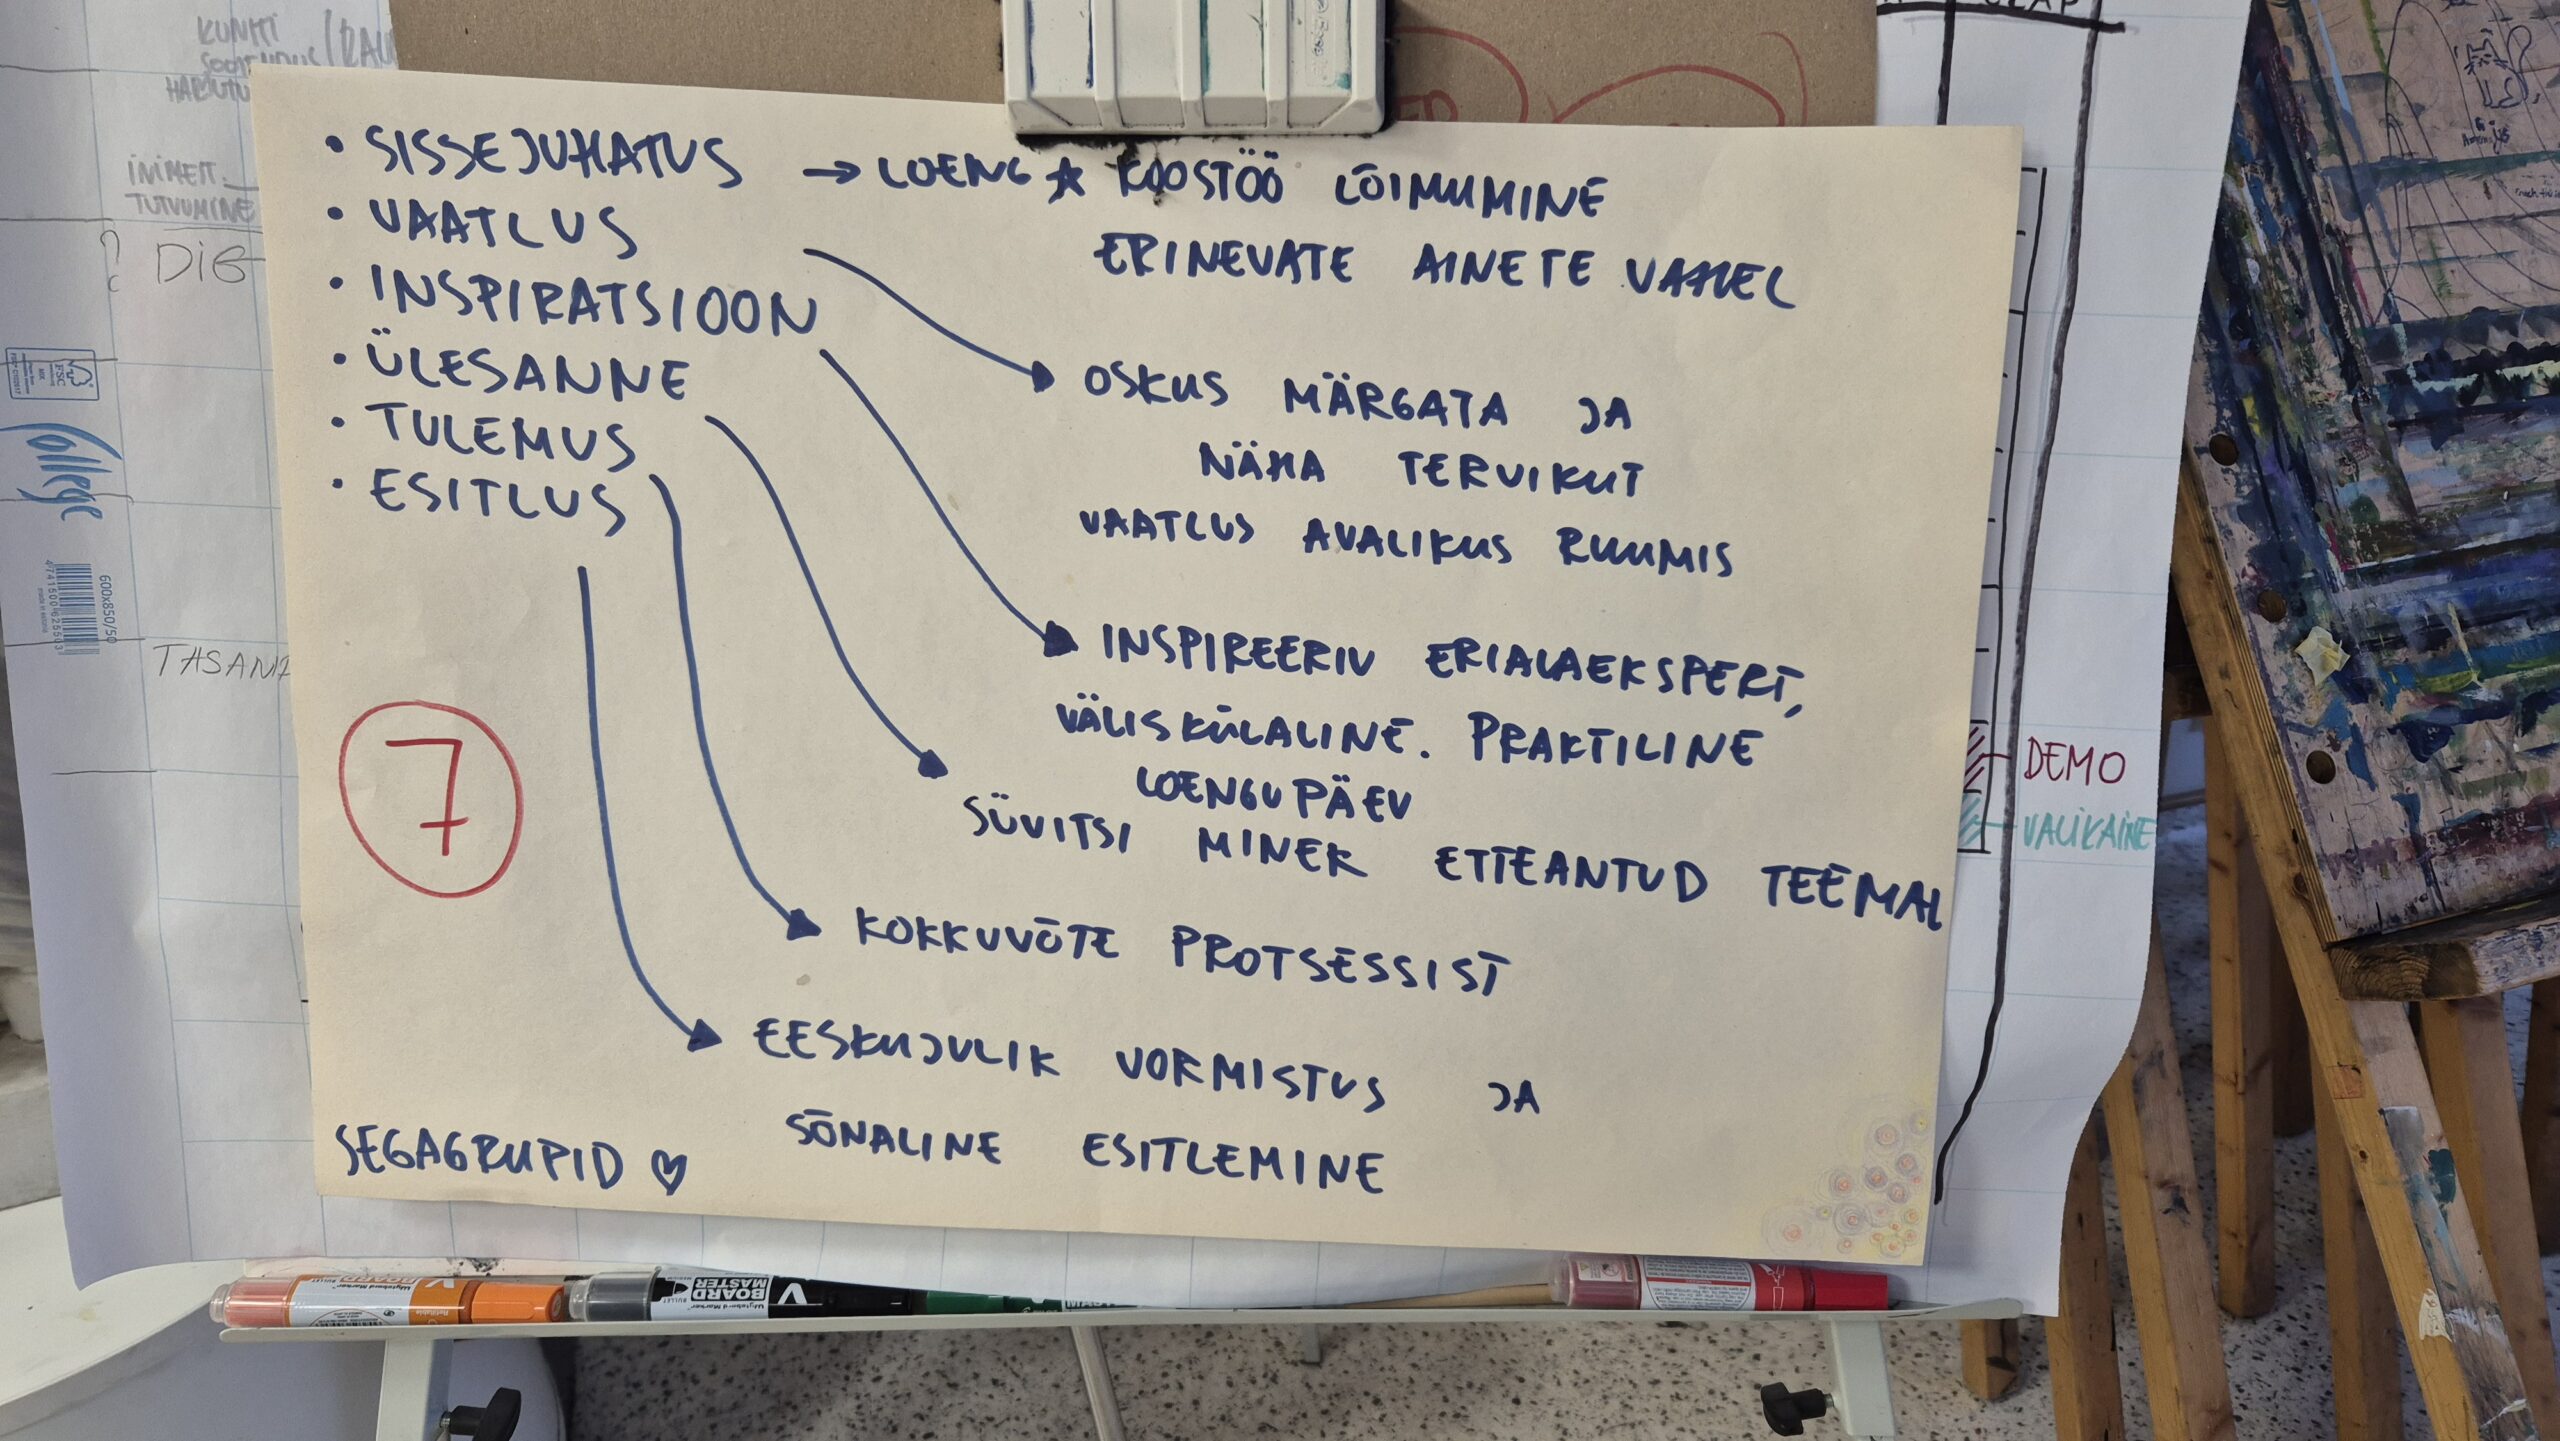 KUNHI
INIMEST.
TUTVUMINE
DIG
• SISSEJUHATUS → LOENG ☆ KOOSTÖÖ LÕIMUMINE
ERINEVATE AINETE VAHEL
• VAATLUS
• INSPIRATSIOON
• ÜLESANNE
• TULEMUS
• ESITLUS
OSKUS MÄRGATA JA
NÄHA TERVIKUT
VAATLUS AVALIKUS RUUMIS
INSPIREERIV ERIALAEKSPERT,
VÄLISKÜLALINE. PRAKTILINE
LOENGUPÄEV
SÜVITSI MINEK ETTEANTUD TEEMAL
KOKKUVÕTE PROTSESSIST
EESKUJULIK VORMISTUS JA
SÕNALINE ESITLEMINE
7
SEGAGRUPID ♡
FSC
College
600x850/50
4741600625503
DEMO
VALIKAINE
V BOARD MASTER